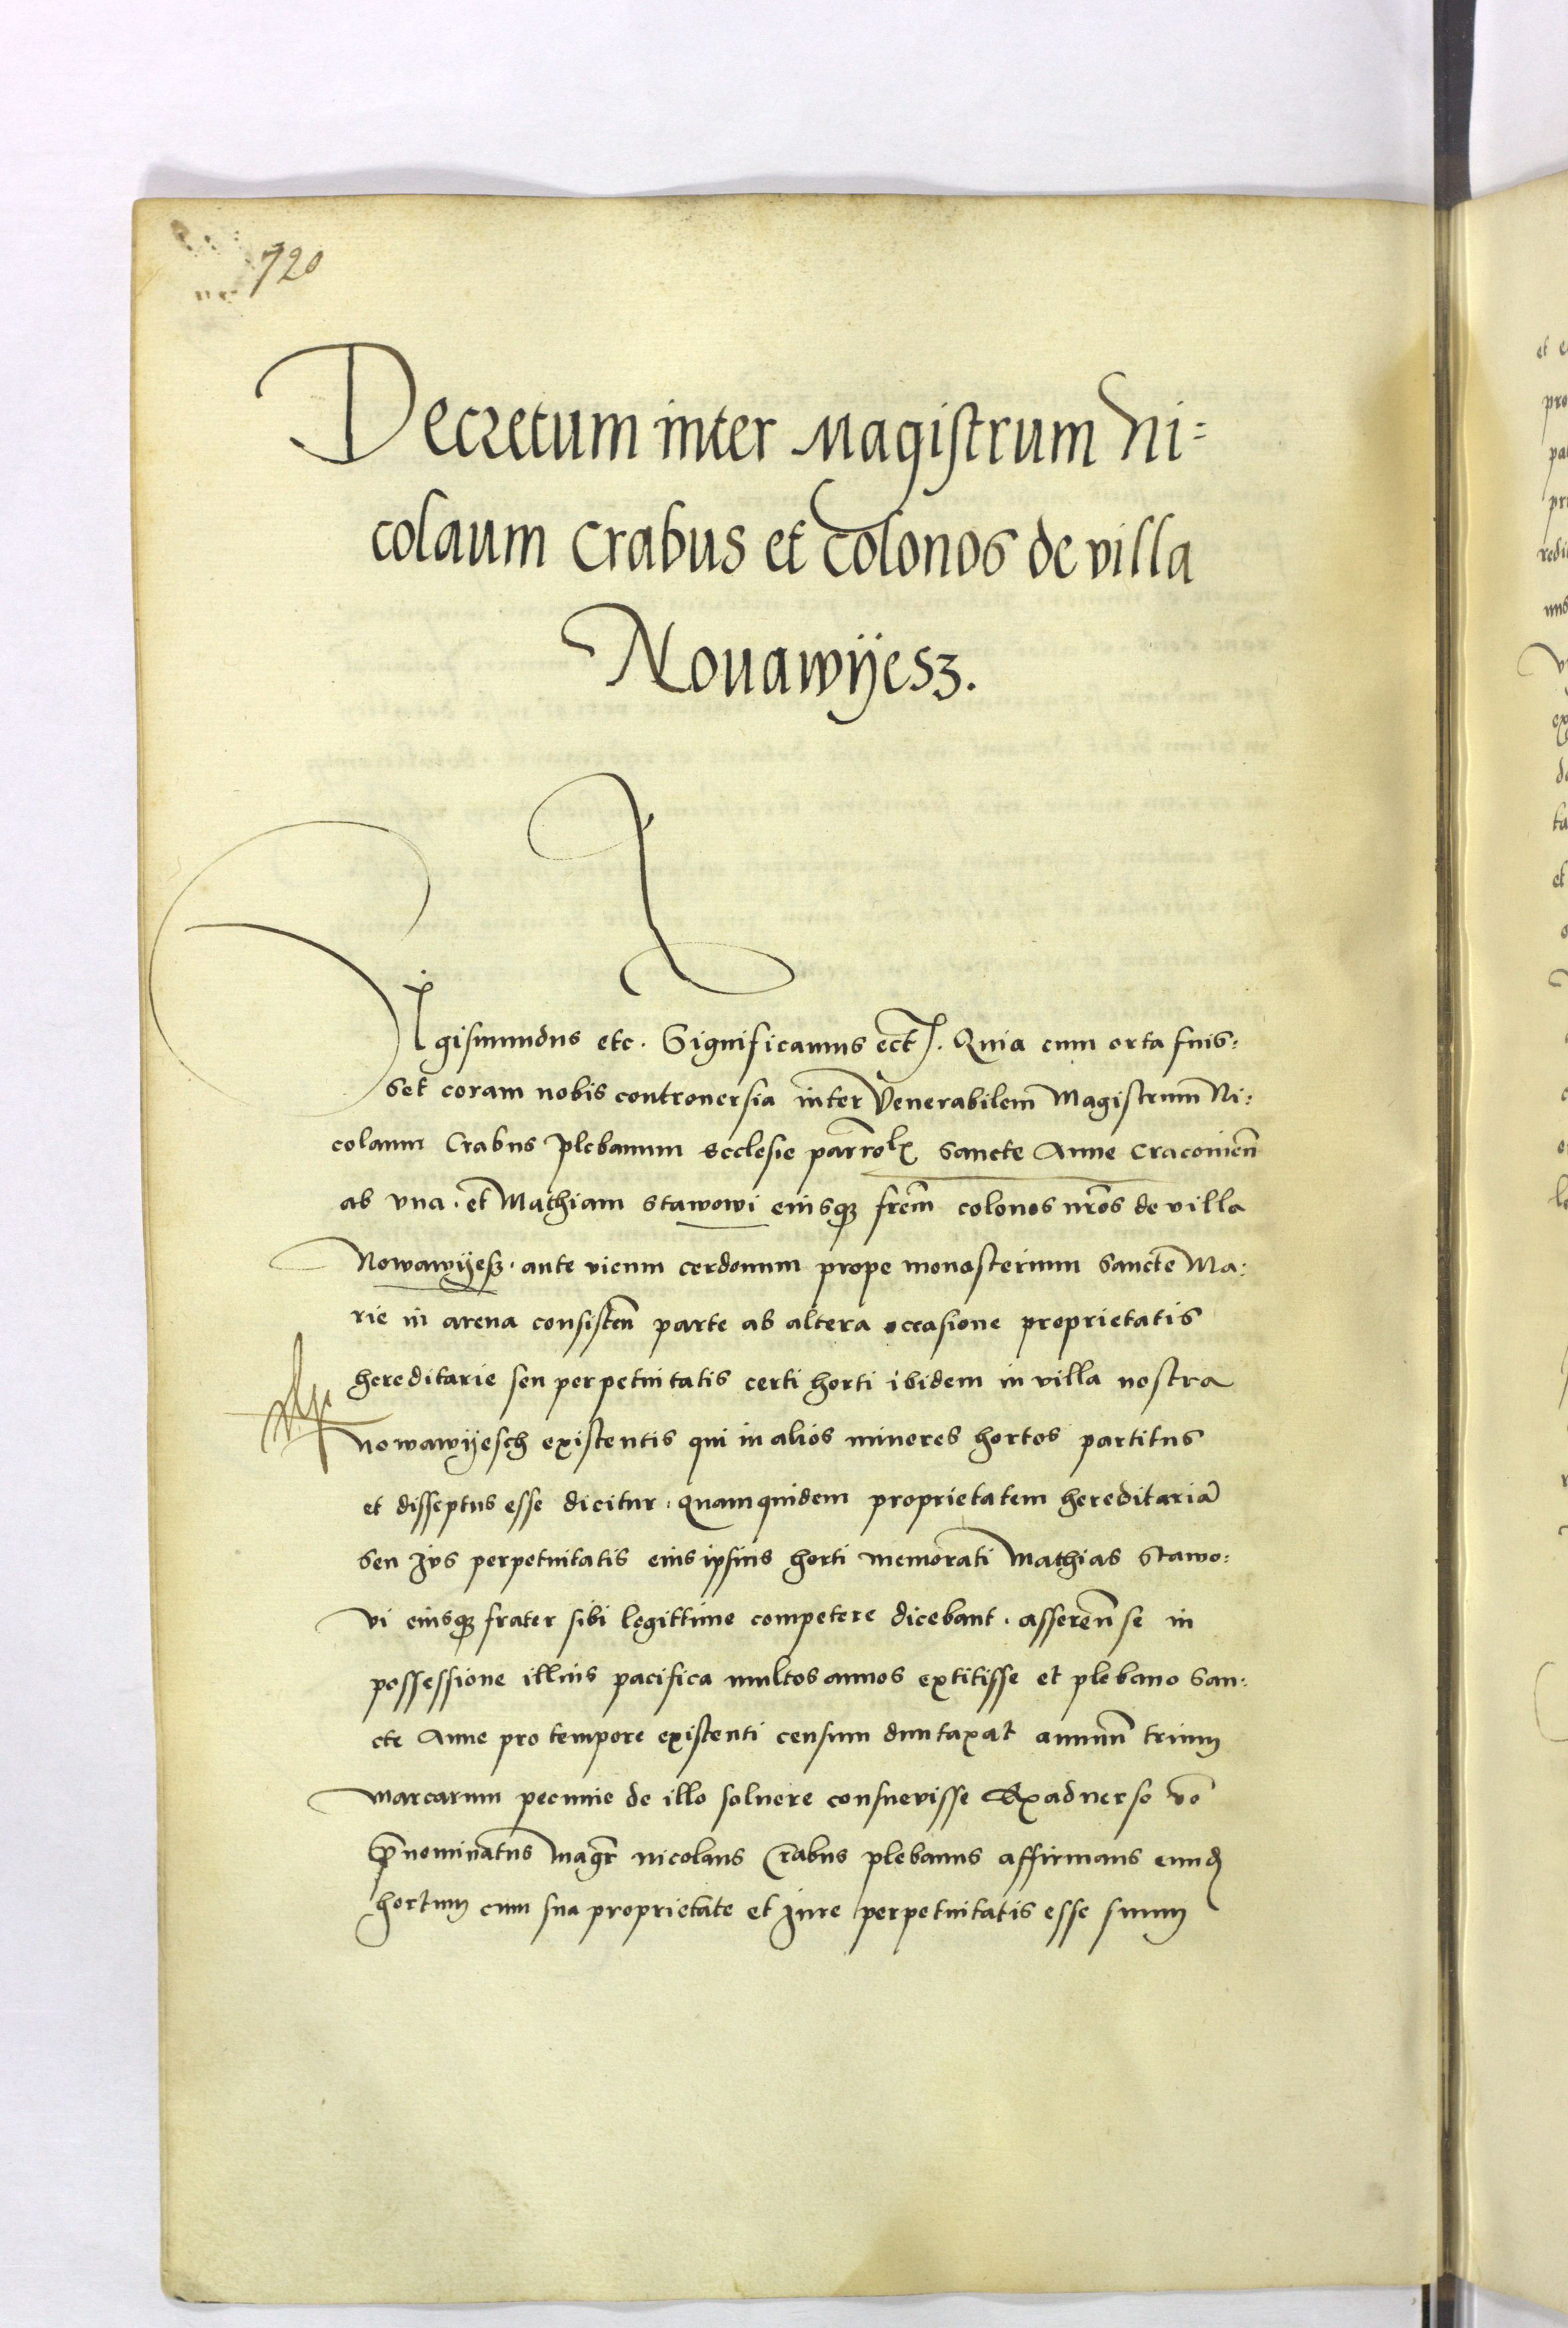 720
Decretum inter Magistrum Ni=
colaum Crabus et colonos de villa
Nouawÿesz.
Sigismundus etc. Significamus ect. Quia cum orta fuis:
set coram nobis controuersia inter Venerabilem Magistrum Ni:
colaum Crabus plebanum ecclesie parrolx Sancte Anne Cracouien̄
ab vna. et Mathiam Stawowi eiusqz frem̄ colonos nr̄os de villa
Nowawÿesz. ante vicum cerdonum prope monasterium Sancte Ma:
rie in arena consisten̄ parte ab altera occasione proprietatis
hereditarie seu perpetuitatis certi horti ibidem in villa nostra
nowawÿesch existentis qui in alios minores hortos partitus
et disseptus esse dicitur. quamquidem proprietatem hereditariā
seu Jus perpetuitatis eius ipsius horti memorati Mathias Stawo:
vi eiusqz frater sibi legittime competere dicebant. asseren̄ se in
possessione illius pacifica multos annos extitisse et plebano San:
cte Anne pro tempore existenti censum duntaxat annuū trium
marcarum pecunie de illo soluere consuevisse Exaduerso vō
p̄nominatus mag̃r nicolaus Crabus plebanus affirmans eund
hortum cum sua proprietate et Jure perpetuitatis esse suum